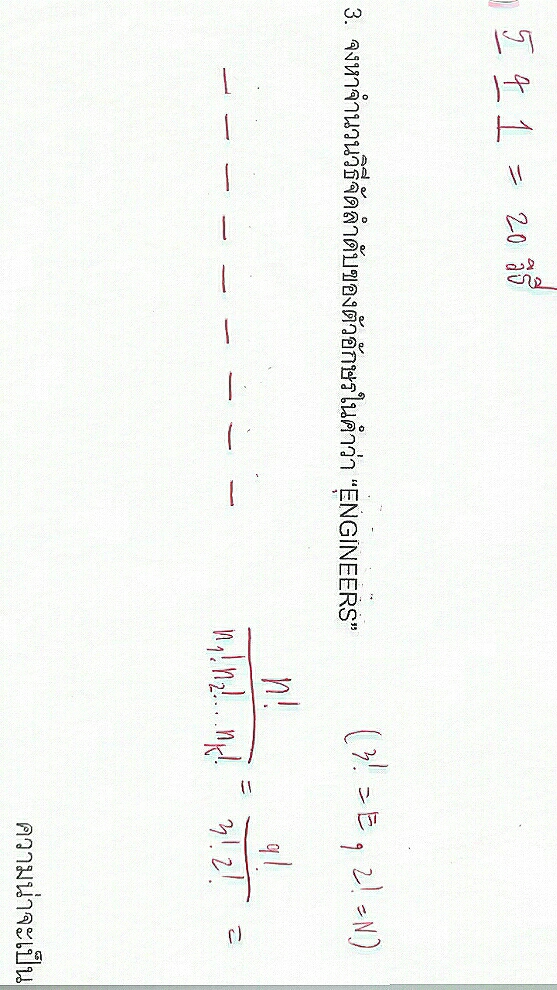 5 4 1 = 20 วิธี
3. จงหาจำนวนวิธีจัดลำดับของตัวอักษรในคำว่า "ENGINEERS"
(3! = E, 2! = N)
_ _ _ _ _ _ _ _ _
n! / n1! n2! ... nk! = 9! / 3! 2! =
ความน่าจะเป็น